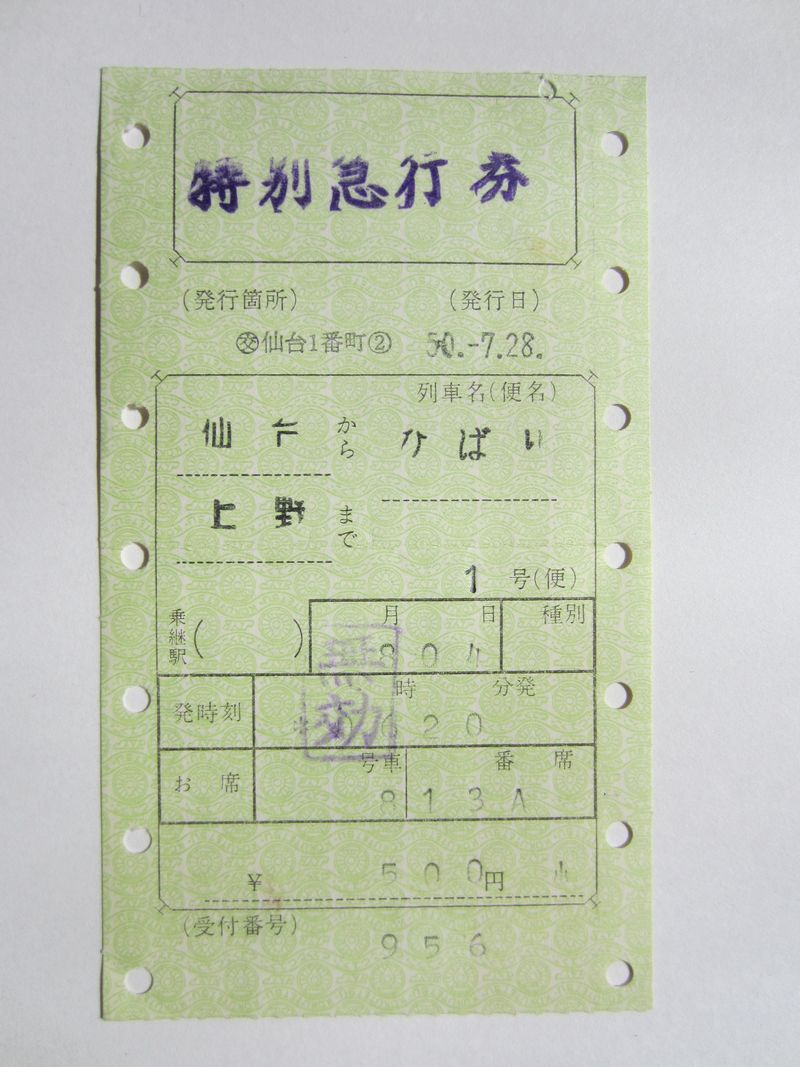 特別急行券
(発行箇所) (発行日)
㊋仙台1番町② 50.-7.28.
列車名(便名)
仙台から ひばり
上野まで
1号(便)
乗継駅( ) 月 日 種別
8 04
無効
発時刻 時 分発
620
お席 号車 番 席
8 13A
¥ 500円 小
(受付番号)
956